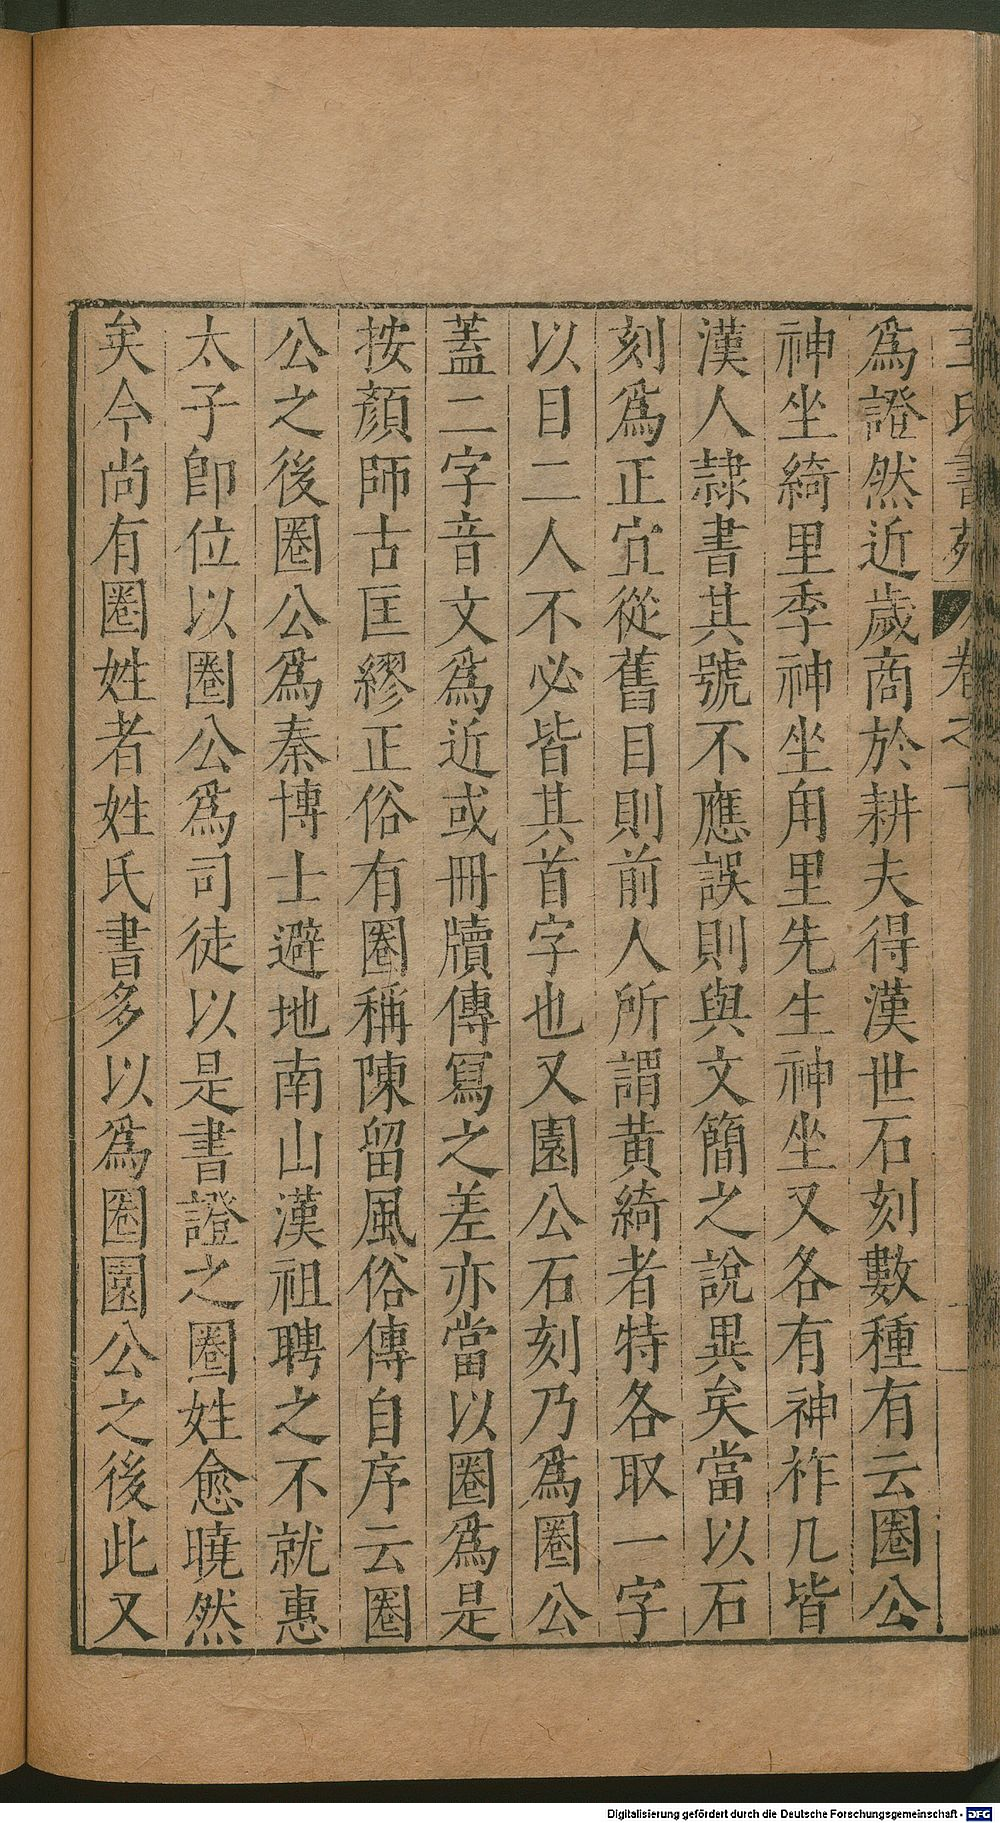 王氏書苑 卷之十
為證然近歲商於耕夫得漢世石刻數種有云圈公
神坐綺里季神坐甪里先生神坐又各有神祚几皆
漢人隷書其號不應誤則與文簡之說異矣當以石
刻為正宜從舊目則前人所謂黃綺者特各取一字
以目二人不必皆其首字也又園公石刻乃為圈公
蓋二字音文為近或冊牘傳冩之差亦當以圈為是
按顏師古匡繆正俗有圈稱陳留風俗傳自序云圈
公之後圈公為秦博士避地南山漢祖聘之不就惠
太子卽位以圈公為司徒以是書證之圈姓愈曉然
矣今尚有圈姓者姓氏書多以為圈園公之後此又
Digitalisierung gefördert durch die Deutsche Forschungsgemeinschaft - DFG